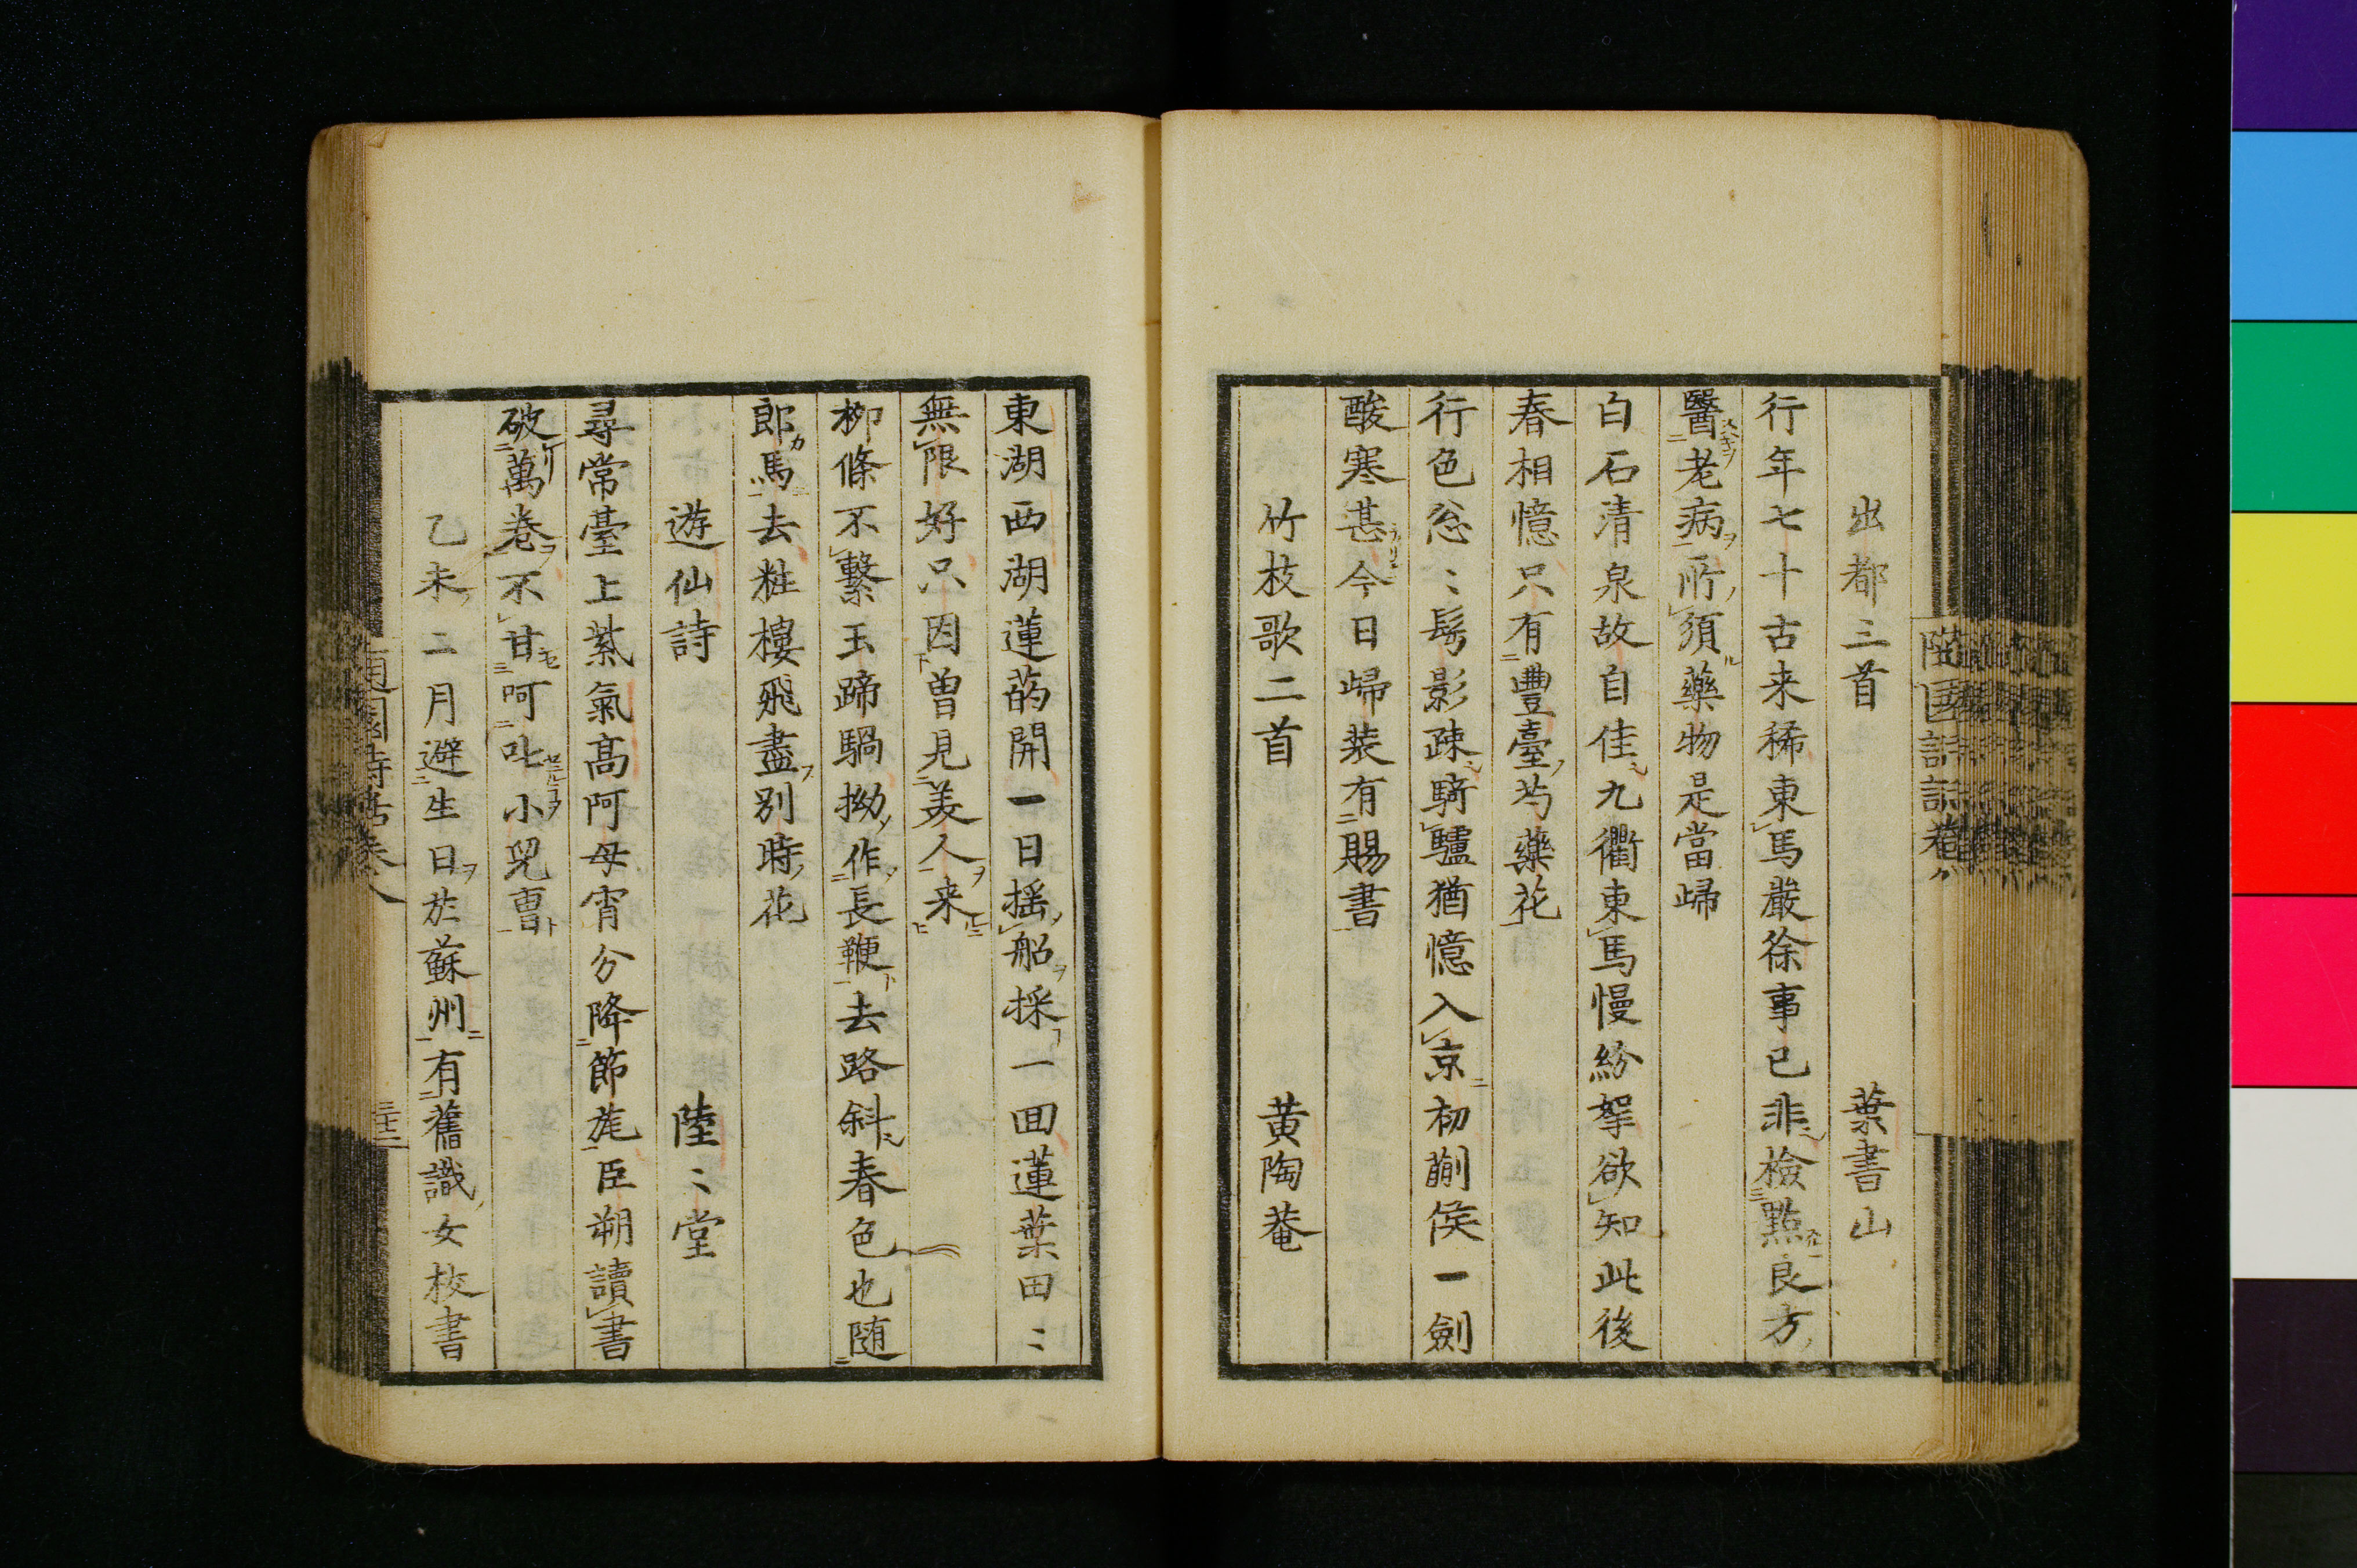 出都三首 葉書山
行年七十古来稀東馬嚴徐事已非檢點良方
醫老病所須藥物是當歸
白石清泉故自佳九衢東馬慢紛拏欲知此後
春相憶只有豐臺芍藥花
行色怱〻髩影疎騎驢猶憶入京初蒯侯一劍
酸寒甚今日歸装有賜書
竹枝歌二首 黄陶菴
東湖西湖蓮菂開一日揺船採一回蓮葉田〻
無限好只因曽見美人来
柳條不繫玉蹄騧拗作長鞭去路斜春色也随
郎馬去粧樓飛盡別時花
遊仙詩 陸〻堂
尋常臺上紫氣髙阿母宵分降節旄臣朔讀書
破萬卷不甘呵叱小兒曹
乙未二月避生日於蘇州有舊識女校書